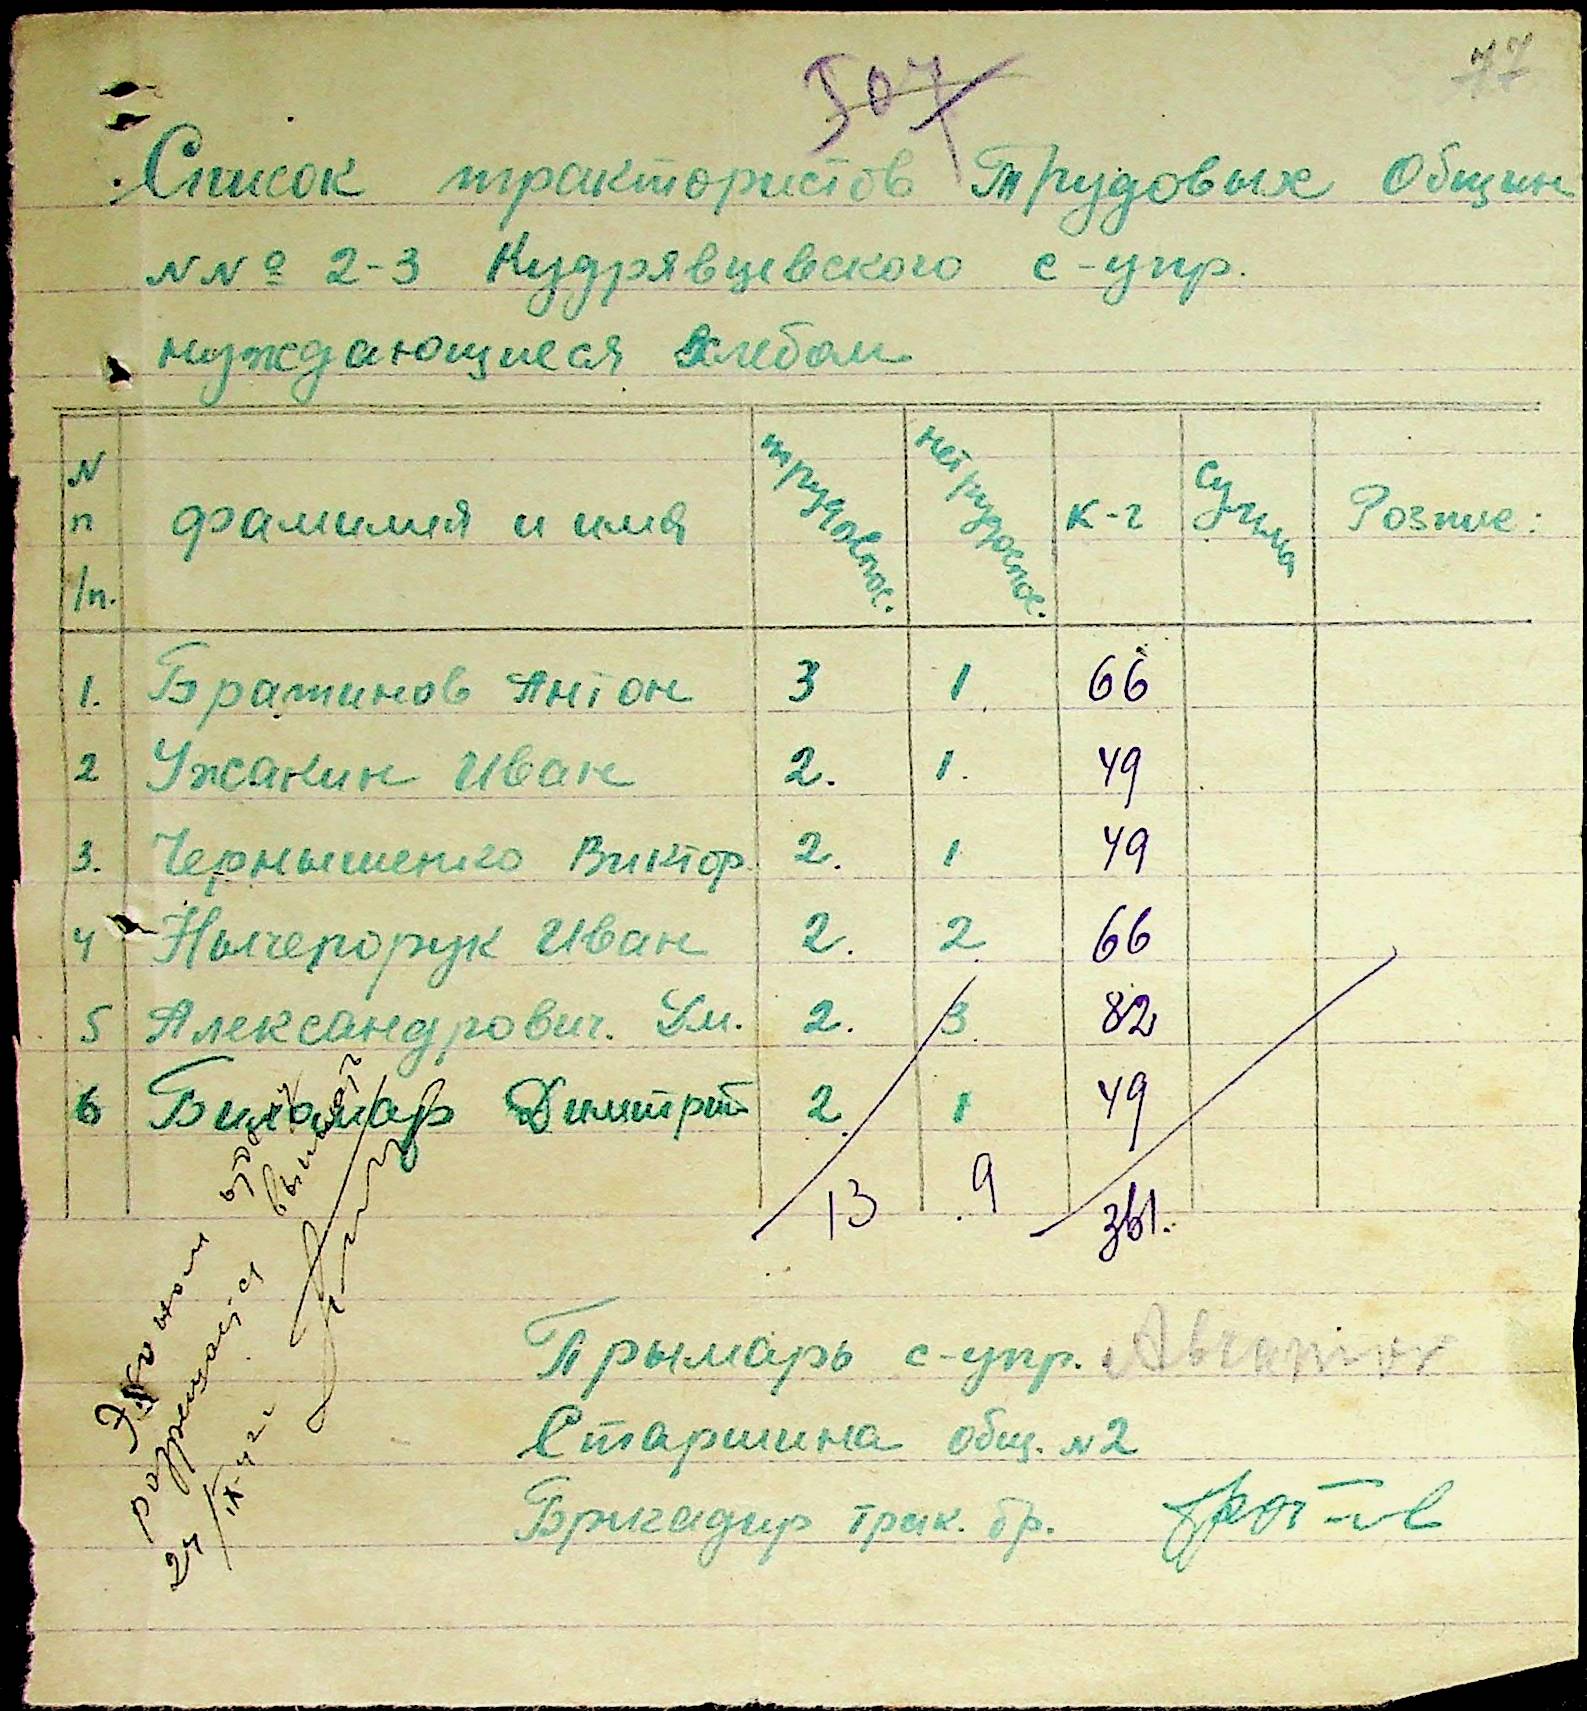 507
77
Список трактористов Трудовых Общин
NNº 2-3 Кудрявцевского с-упр.
нуждающиеся хлебом
N п/п. фамилия и имя трудоспос. нетрудоспос. к-г сумма Розпис:
1. Братинов Антон 3 1. 66
2 Ужакин Иван 2. 1. 49
3. Чернышенко Виктор 2. 1. 49
4 Нычепорук Иван 2. 2 66
5 Александрович. Дм. 2. 3. 82
6 Димитрий 2. 1 49
13 9 361.
Эконом
выдать
разрешается
24/IX-42
Прымарь с-упр.
Старшина общ. N2
Бригадир трак. бр.